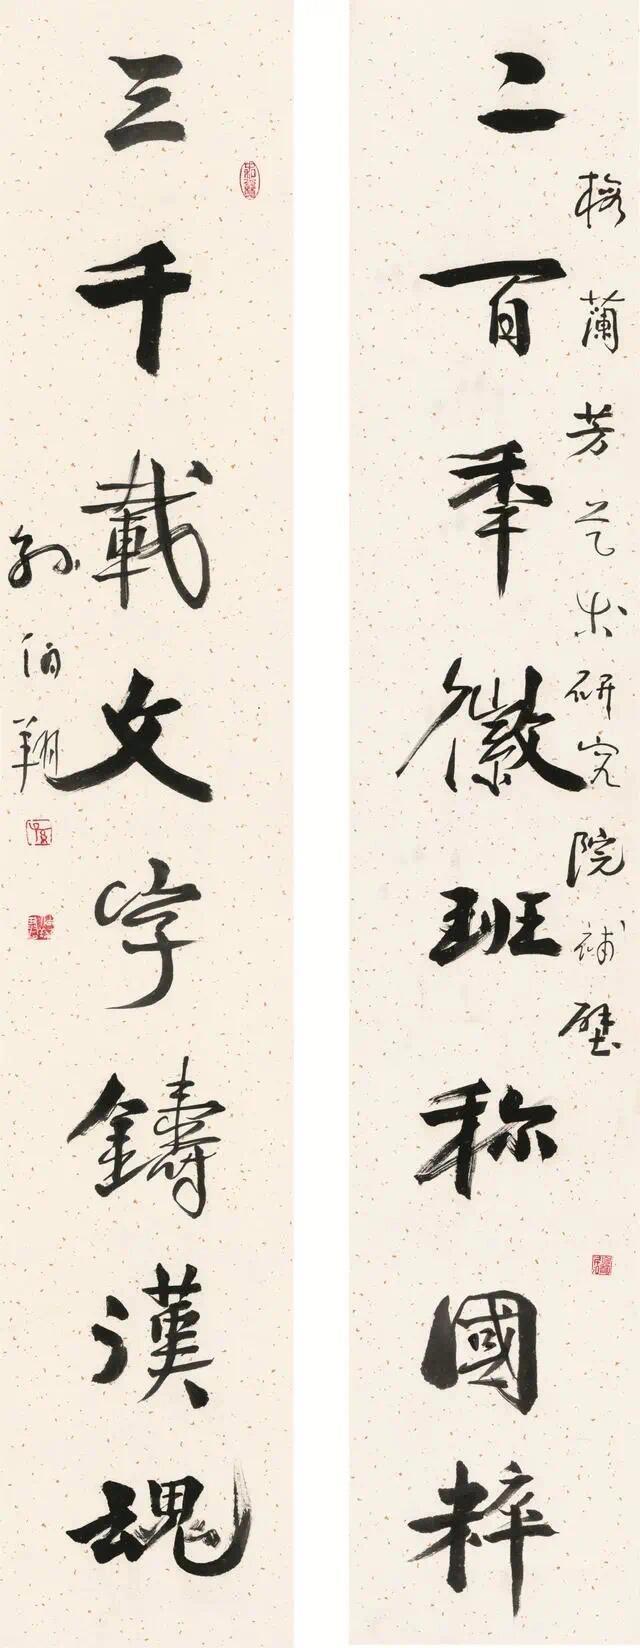 梅蘭芳艺术研究院補壁
二百年徽班称國粹
三千載文字鑄漢魂
孙伯翔